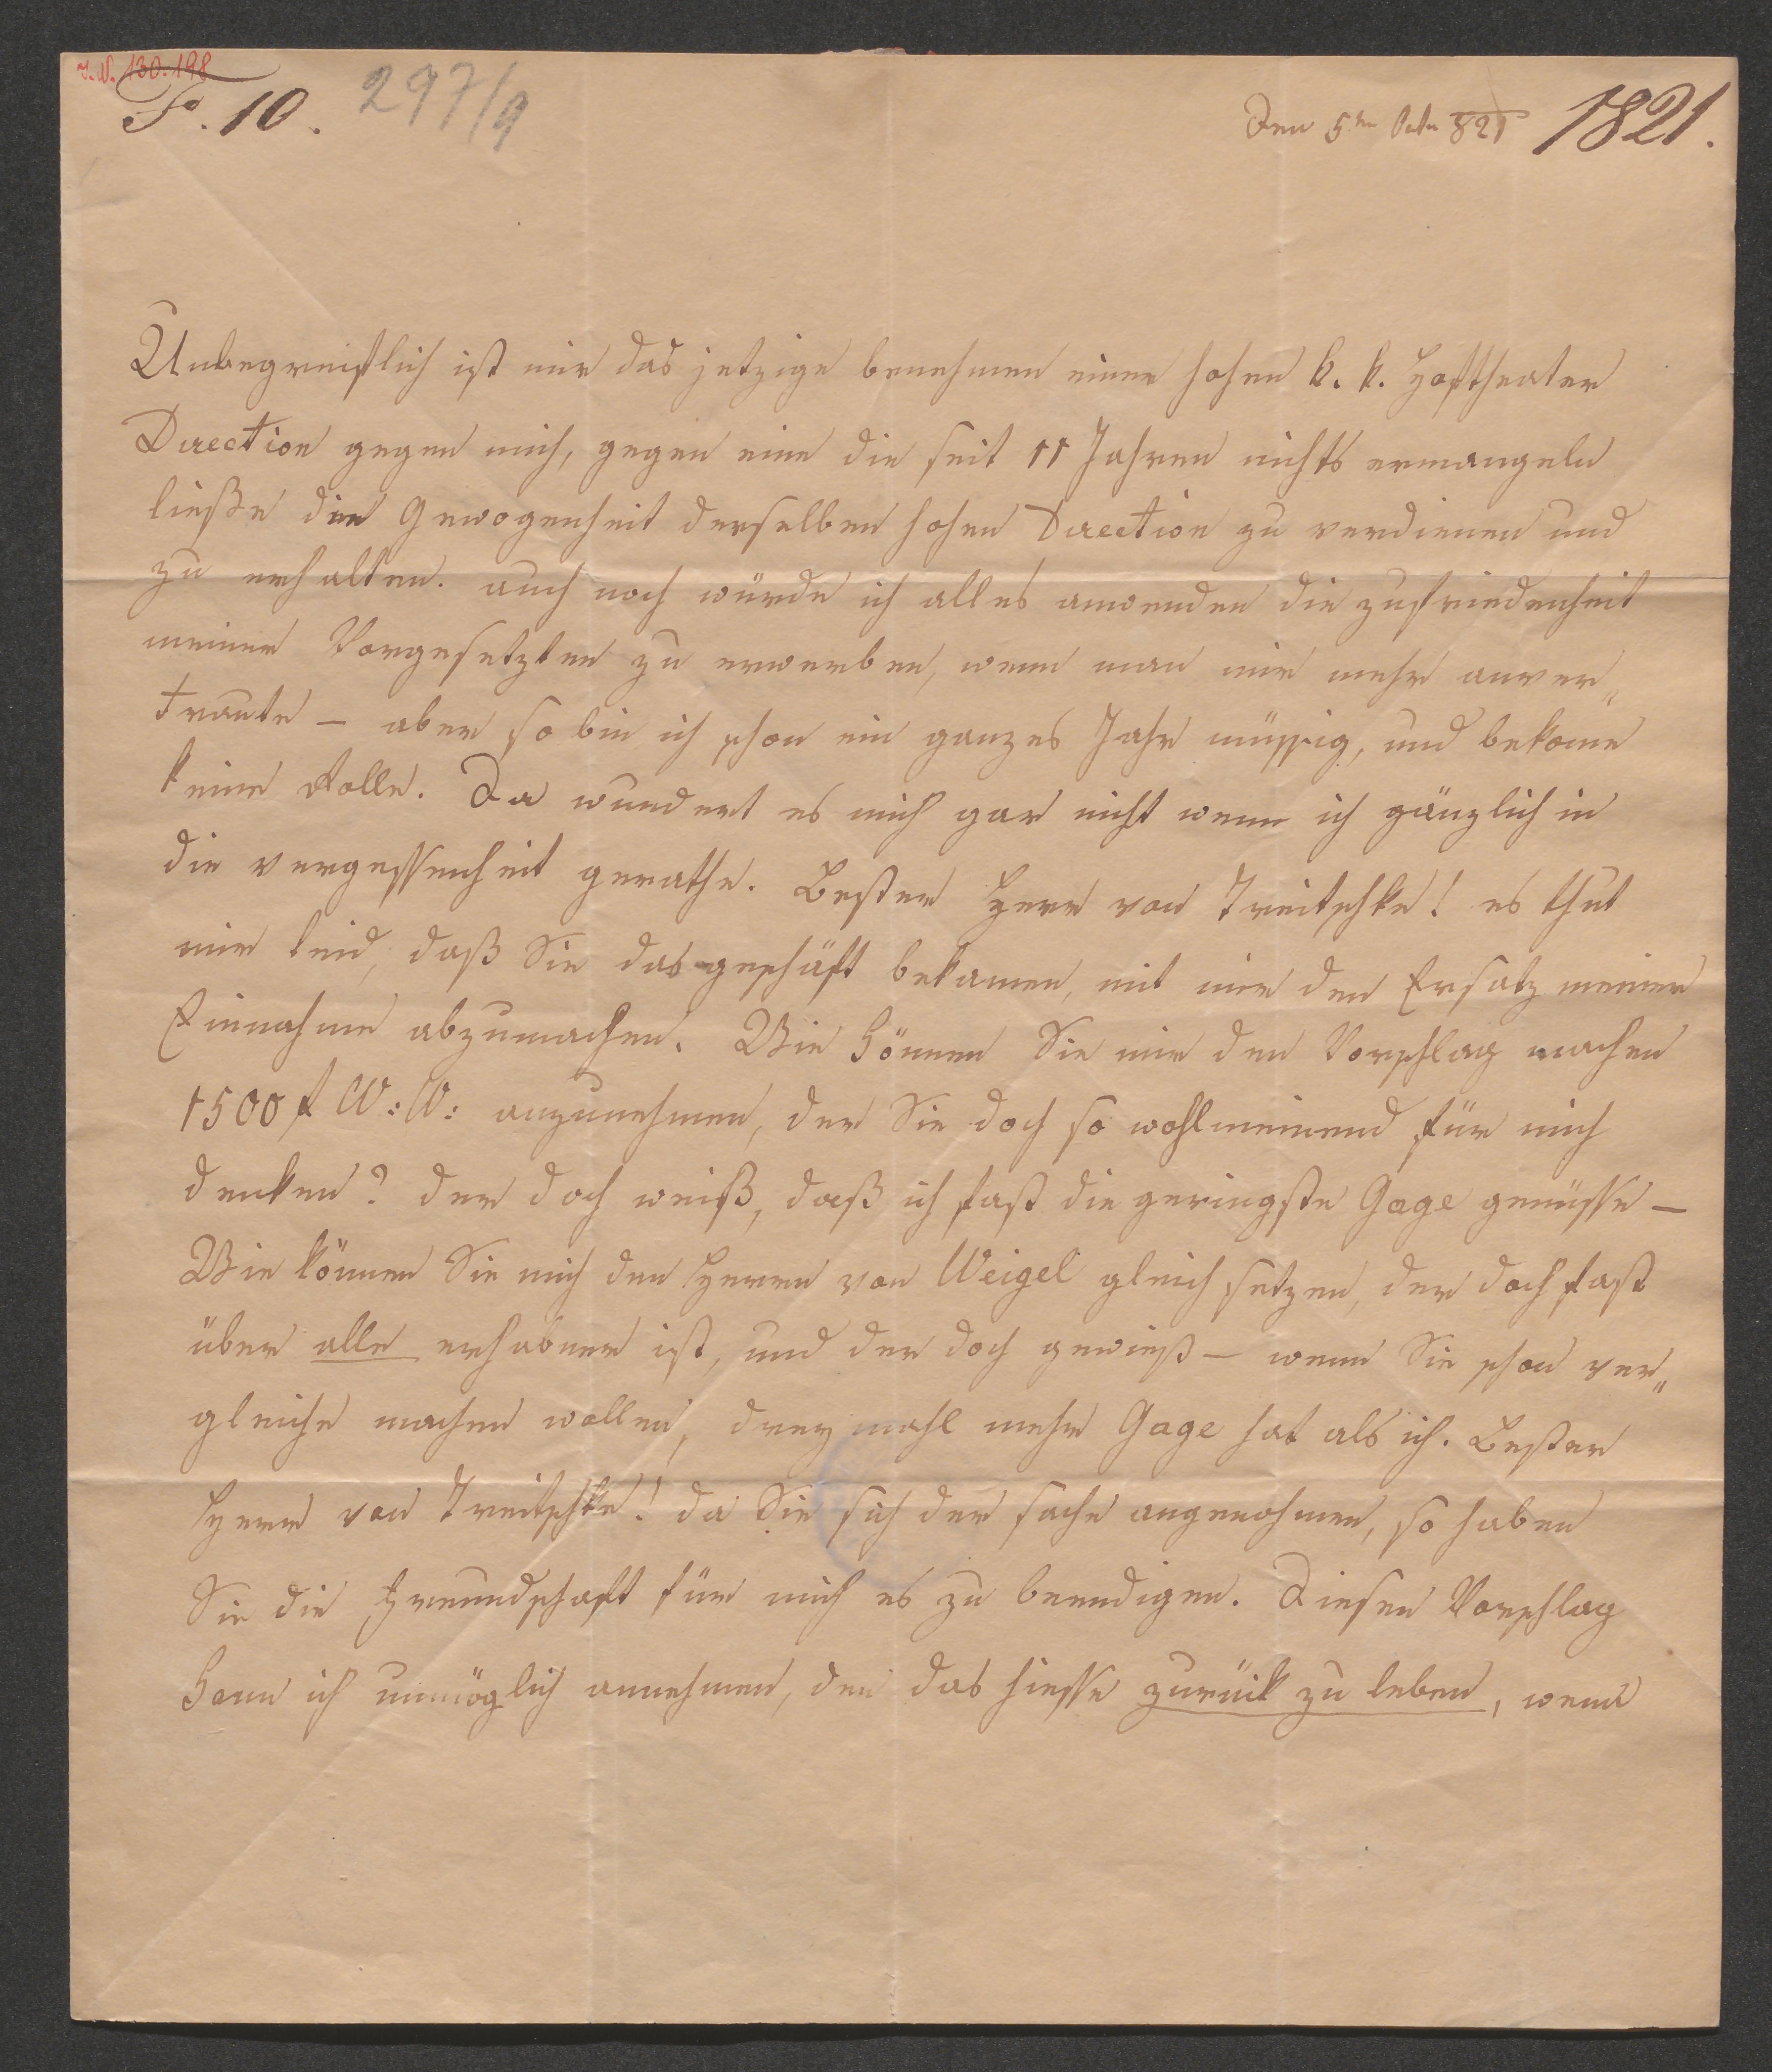 J.N. 130.198
F. 10. 297/9
Den 5ten Octr 821 1821.
Unbegreiflich ist mir das jetzige benehmen einer hohen k. k. Hoftheater
Direction gegen mich, gegen eine die seit 11 Jahren nichts ermangeln
ließe die Gewogenheit derselben hohen Direction zu verdienen und
zu erhalten. auch noch würde ich alles anwenden die zufriedenheit
meiner Vorgesetzten zu erwerben, wenn man mir mehr anver„
traute – aber so bin ich schon ein ganzes Jahr müssig, und bekome
keine Rolle. Da wundert es mich gar nicht wenn ich gänzlich in
die vergessenheit gerathe. Bester Herr von Treitschke! es thut
mir leid, daß Sie das geschäft bekamen, mit mir den Ersatz meiner
Einnahme abzumachen. Wie können Sie mir den Vorschlag machen
1500 f W: W: anzunehmen, der Sie doch so wohlmeinend für mich
denken? der doch weiß, daß ich fast die geringste Gage genüsse –
Wie können Sie mich den Herrn von Weigel gleich setzen, der doch fast
über alle erhabner ist, und der doch gewieß – wenn Sie schon ver„
gleiche machen wollen, drey mahl mehr Gage hat als ich. Bester
Herr von Treitschke! da Sie sich der sache angenohmen, so haben
Sie die Freundschaft für mich es zu beendigen. Diesen Vorschlag
kann ich unmöglich annehmen, den das hiesse zurük zu leben, wenn